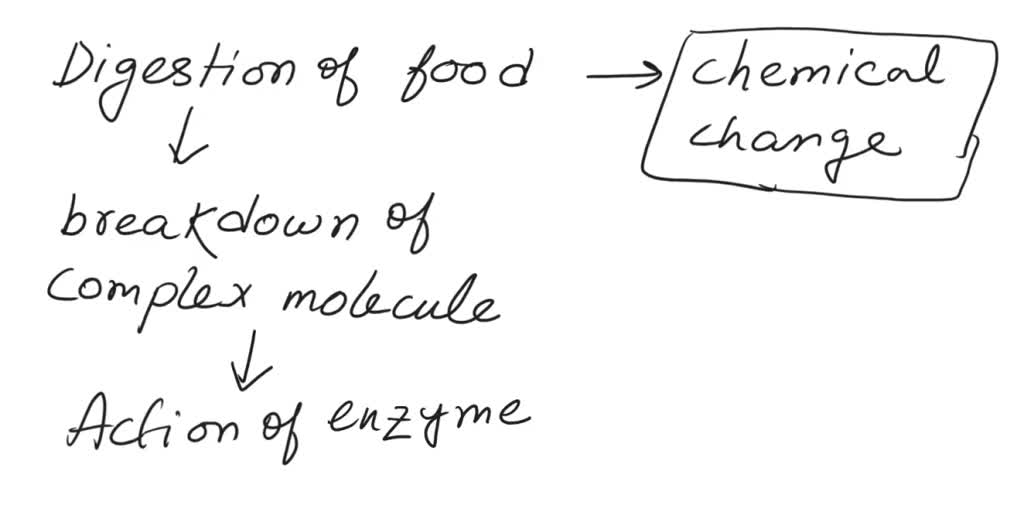 Digestion of food → chemical
change
↓
breakdown of
complex molecule
↓
Action of enzyme